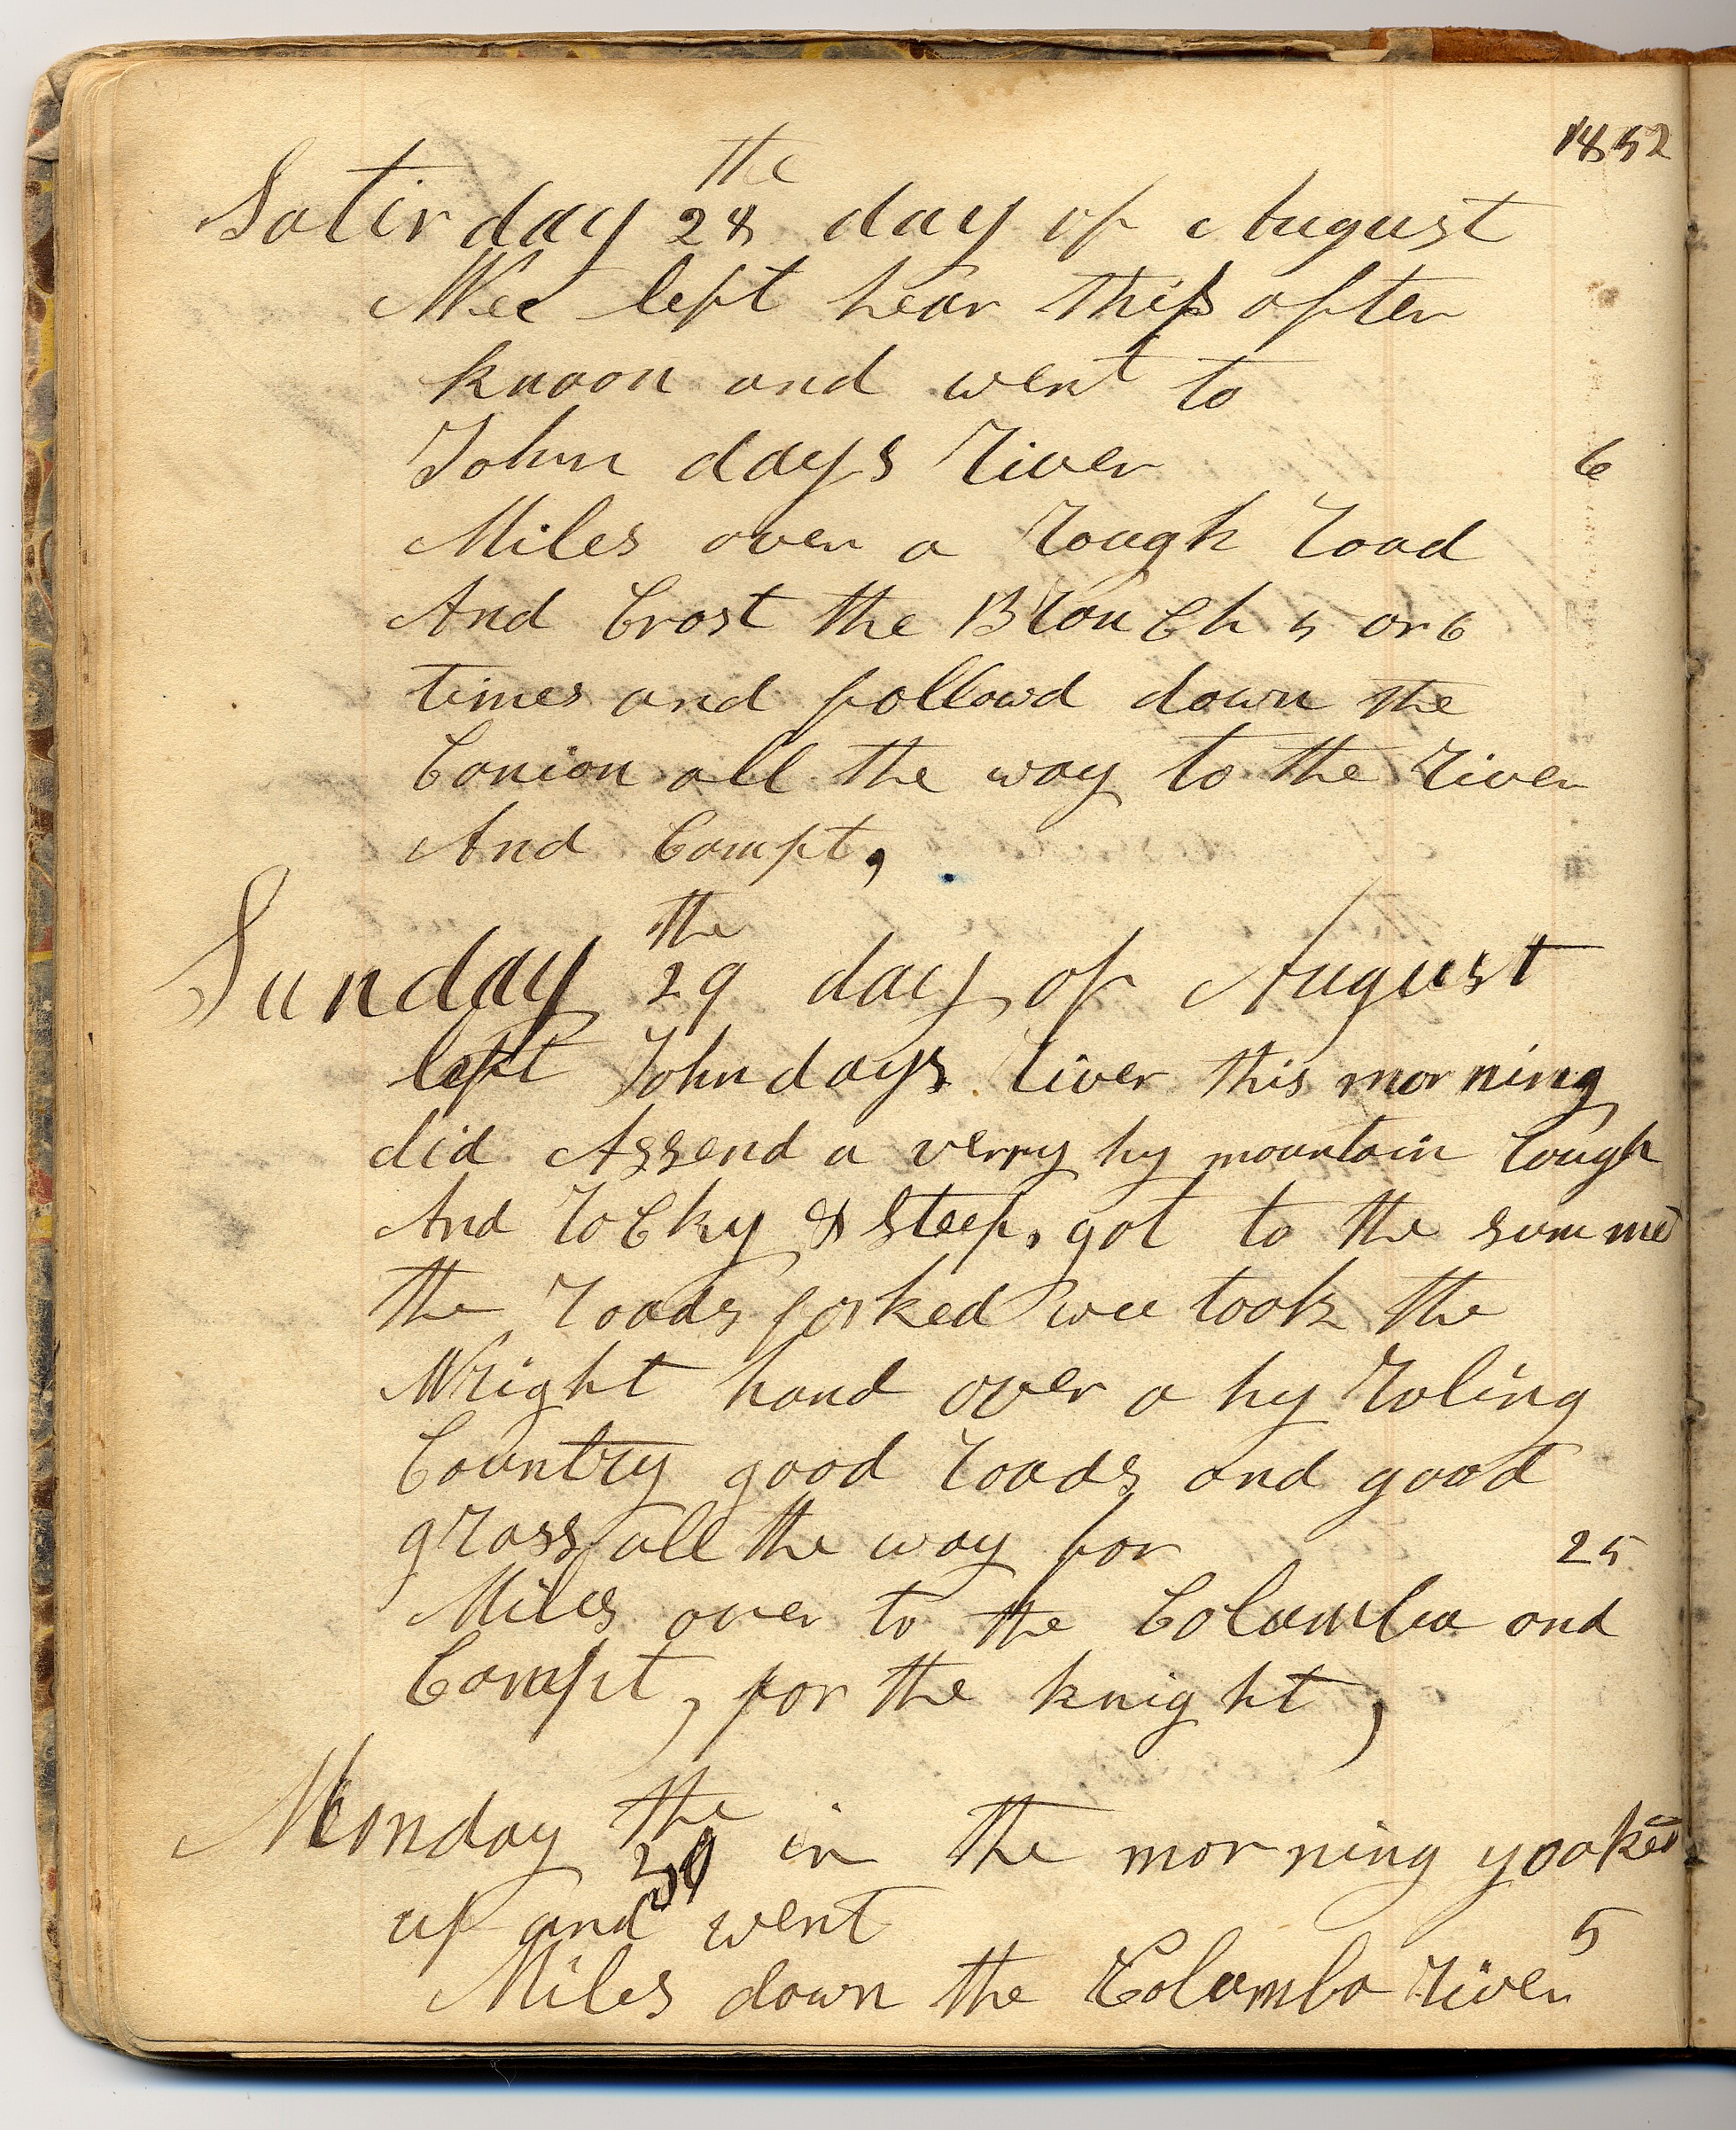 1852
the
Satirday 28 day of August
Wee left hear this after
knoon and went to
John days River 6
Miles over a Rough Road
And Crost the Branch 5 or 6
times and followd down the
Canion all the way to the River
And Campt,
the
Sunday 29 day of August
left John days River this morning
did Assend a verry hy mountain Rough
And Rocky & Steep, got to the summe
the Roads forked wee took the
Wright hand over a hy Roling
Country good Roads and good
grass all the way for 25
Miles over to the Columba and
Campt, for the knight,
the
Monday 30 in the morning yooked
up and went 5
Miles down the Columba River